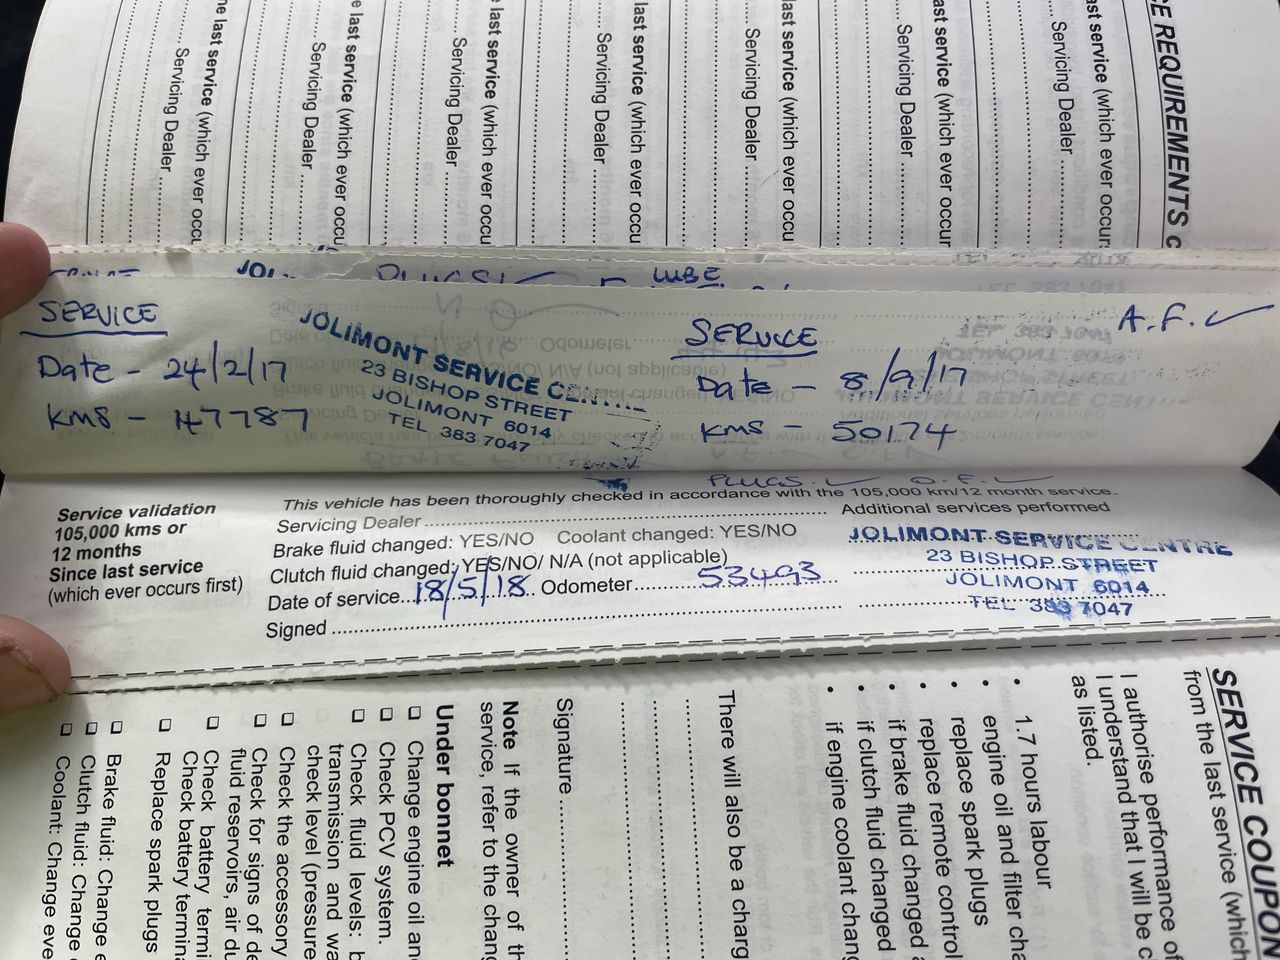 CE REQUIREMENTS
last service (which ever occurs
Servicing Dealer
last service (which ever occur
Servicing Dealer
last service (which ever occu
Servicing Dealer
last service (which ever occu
Servicing Dealer
e last service (which ever occu
Servicing Dealer
e last service (which ever occu
Servicing Dealer
ne last service (which ever occu
Servicing Dealer
LUBE
SERVICE
Date - 24/2/17
KMS - 47787
JOLIMONT SERVICE CEN
23 BISHOP STREET
JOLIMONT 6014
TEL 383 7047
SERVICE
Date - 8/9/17
KMS - 50174
A.F. ✓
PLUGS ✓ O.F. ✓
Service validation
105,000 kms or
12 months
Since last service
(which ever occurs first)
This vehicle has been thoroughly checked in accordance with the 105,000 km/12 month service.
Servicing Dealer
Additional services performed
Brake fluid changed: YES/NO Coolant changed: YES/NO
Clutch fluid changed: YES/NO/ N/A (not applicable)
Date of service 18/5/18 Odometer 53493
Signed
JOLIMONT SERVICE CENTRE
23 BISHOP STREET
JOLIMONT 6014
TEL 383 7047
SERVICE COUPON
from the last service (which
I authorise performance of
I understand that I will be c
as listed.
• 1.7 hours labour
• engine oil and filter cha
• replace spark plugs
• replace remote control
• if brake fluid changed a
• if clutch fluid changed
• if engine coolant chan
There will also be a charg
Signature
Note If the owner of th
service, refer to the chan
Under bonnet
❑ Change engine oil an
❑ Check PCV system.
❑ Check fluid levels: b
transmission and wa
check level (pressure
❑ Check the accessory
❑ Check for signs of de
fluid reservoirs, air du
❑ Check battery termi
Check battery termina
❑ Replace spark plugs
❑ Brake fluid: Change e
❑ Clutch fluid: Change
❑ Coolant: Change eve